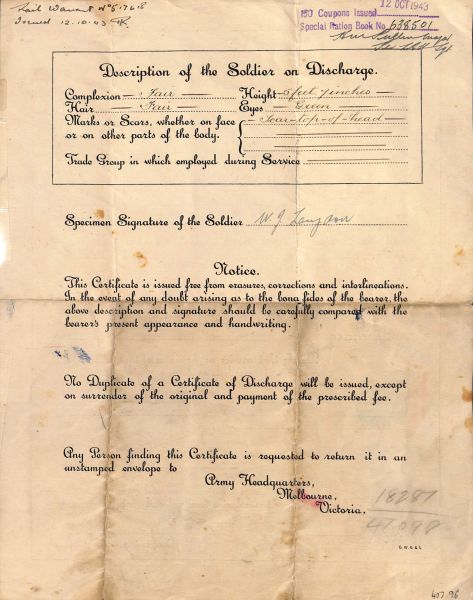 Rail Warrant No
Issued 12.10.43
12 OCT 1943
150 Coupons Issued
Special Ration Book No. 638501
Description of the Soldier on Discharge.
Complexion Fair Height 5 feet 7 inches
Hair Fair Eyes Green
Marks or Scars, whether on face
or on other parts of the body. Scar-top-of-head
Trade Group in which employed during Service
Specimen Signature of the Soldier W. J. Langdon
Notice.
This Certificate is issued free from erasures, corrections and interlineations.
In the event of any doubt arising as to the bona fides of the bearer, the
above description and signature should be carefully compared with the
bearer's present appearance and handwriting.
No Duplicate of a Certificate of Discharge will be issued, except
on surrender of the original and payment of the prescribed fee.
Any Person finding this Certificate is requested to return it in an
unstamped envelope to
Army Headquarters,
Melbourne,
Victoria.
18287
41098